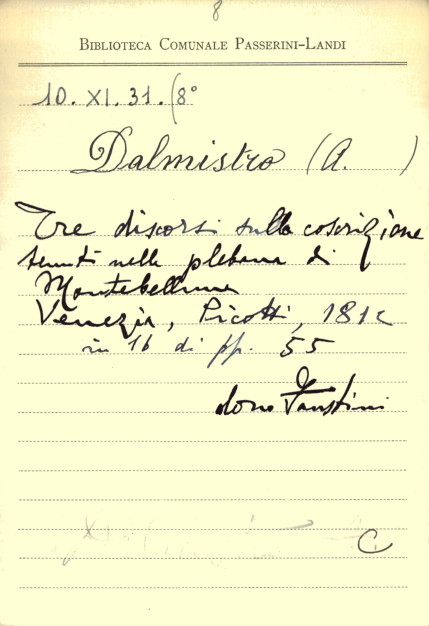 8
BIBLIOTECA COMUNALE PASSERINI-LANDI
10. XI. 31. (8°
Dalmistro (A. )
Tre discorsi sulla coscrizione
tenuti nella plebana di
Montebelluna
Venezia, Picotti, 1812
in 16 di pp. 55
dono Faustini
C